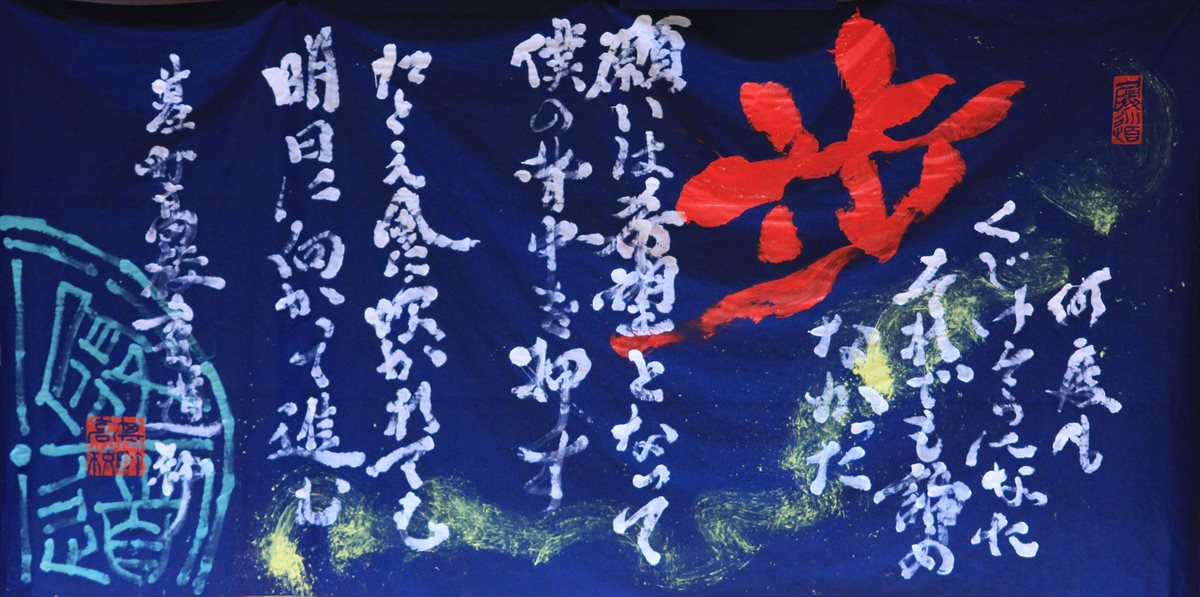 歩
何度も
くじけそうになった
それでも諦め
なかった
願いは希望となって
僕の背中を押す
たとえ風に吹かれても
明日に向かって進む
基町高校書道部